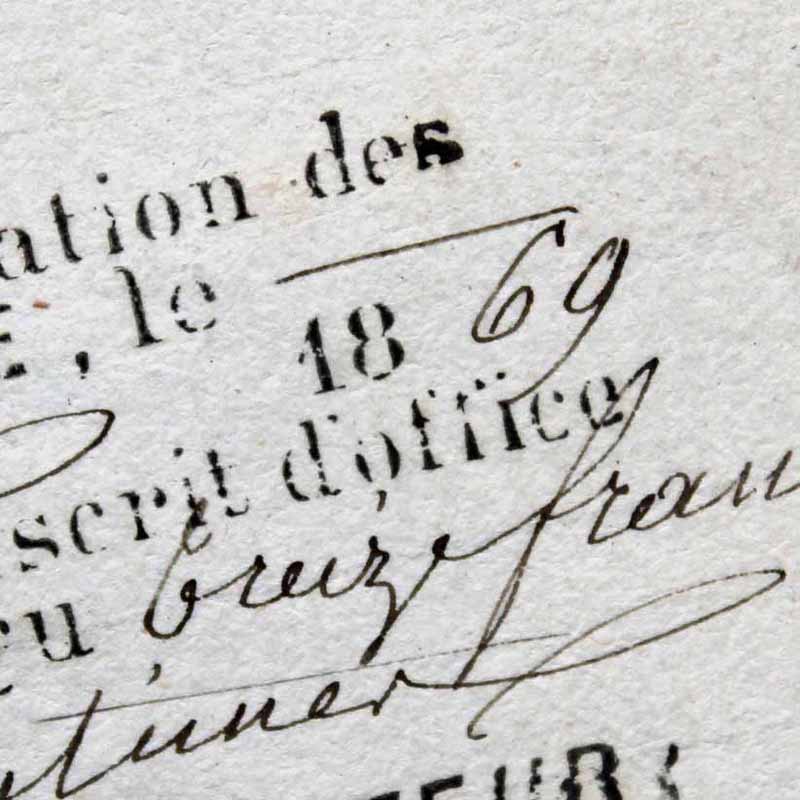 ation des
E, le
1869
scrit d'office
çu treize fran
timer
TEUR